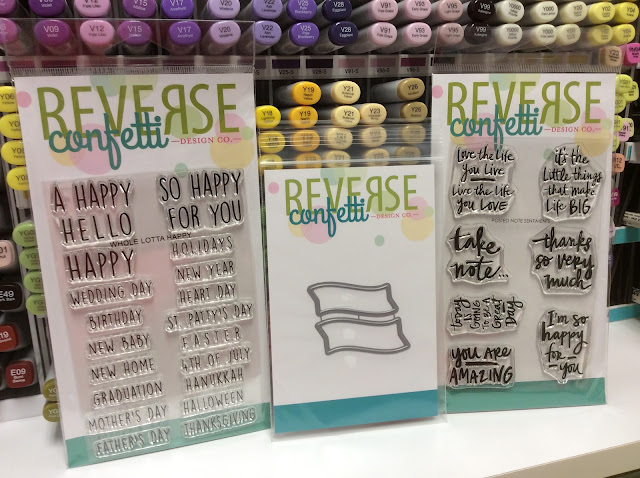 V12
V15
V17
V20
V25
V28
V91
V93
V95
V99
V09
V12
V15
V17
V20
V25
V28
V91
V93
V95
V99
Y19
Y21
Y26
Y19
Y21
Y26
E49
E09
REVERSE
confetti
DESIGN CO.
A HAPPY
HELLO
HAPPY
SO HAPPY
FOR YOU
WHOLE LOTTA HAPPY
WEDDING DAY
BIRTHDAY
NEW BABY
NEW HOME
GRADUATION
MOTHER'S DAY
FATHER'S DAY
HOLIDAYS
NEW YEAR
HEART DAY
ST. PATTY'S DAY
EASTER
4TH OF JULY
HANUKKAH
HALLOWEEN
THANKSGIVING
REVERSE
confetti
DESIGN CO.
REVERSE
confetti
DESIGN CO.
Love the life
you Live
Live the life
you LOVE
it's the
little things
that make
life BIG
POSTED NOTE SENTIMENTS
take
note...
thanks
so very
much
today
is GOING
to BE A
Great
Day
I'm so
happy
for you
you ARE
AMAZING